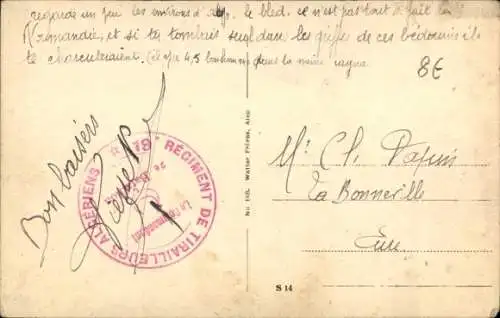 regarde un peu les environs d'Alep. le bled. ce n'est pas tout à fait la
Normandie, et si tu tombais seul dans les griffes de ces bédouins ils
te charcuteraient. (il y a 4,5 bonhommes dans la même
8€
Bons baisers
Pierre
18e RÉGIMENT DE TIRAILLEURS ALGÉRIENS
Le Commandant
No 108. Wattar Frères, Alep
Mr Ch. Papin
La Bonneville
Eure
S 14